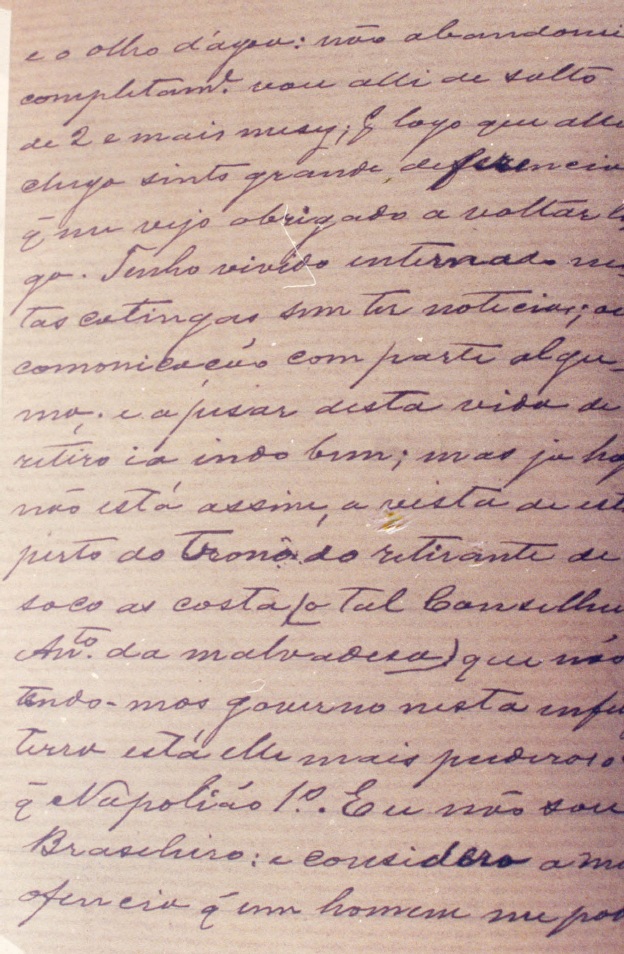 e o olho d'agoa: não abandonei
completam.te vou alli de salto
de 2 e mais mesy; E logo que alli
chego sinto grande deferencia
q̃ me vejo obrigado a voltar lo
go. Tenho vivido internado nes
tas catingas sem ter noticias; ou
comonicação com parte algu-
ma. e a pesar desta vida de
retiro ia indo bem; mas ja hoj
não está assim, a vista de est
perto do Trono do retirante de
saco as costa (o tal Conselhe
Ant.o da malvadesa) que nós
tendo-mos governo nesta infe
terra está elle mais puderoso
q̃ Napolião 1º. Eu não sou
Brasileiro: e considero a me
ofencia q̃ um homem me pod